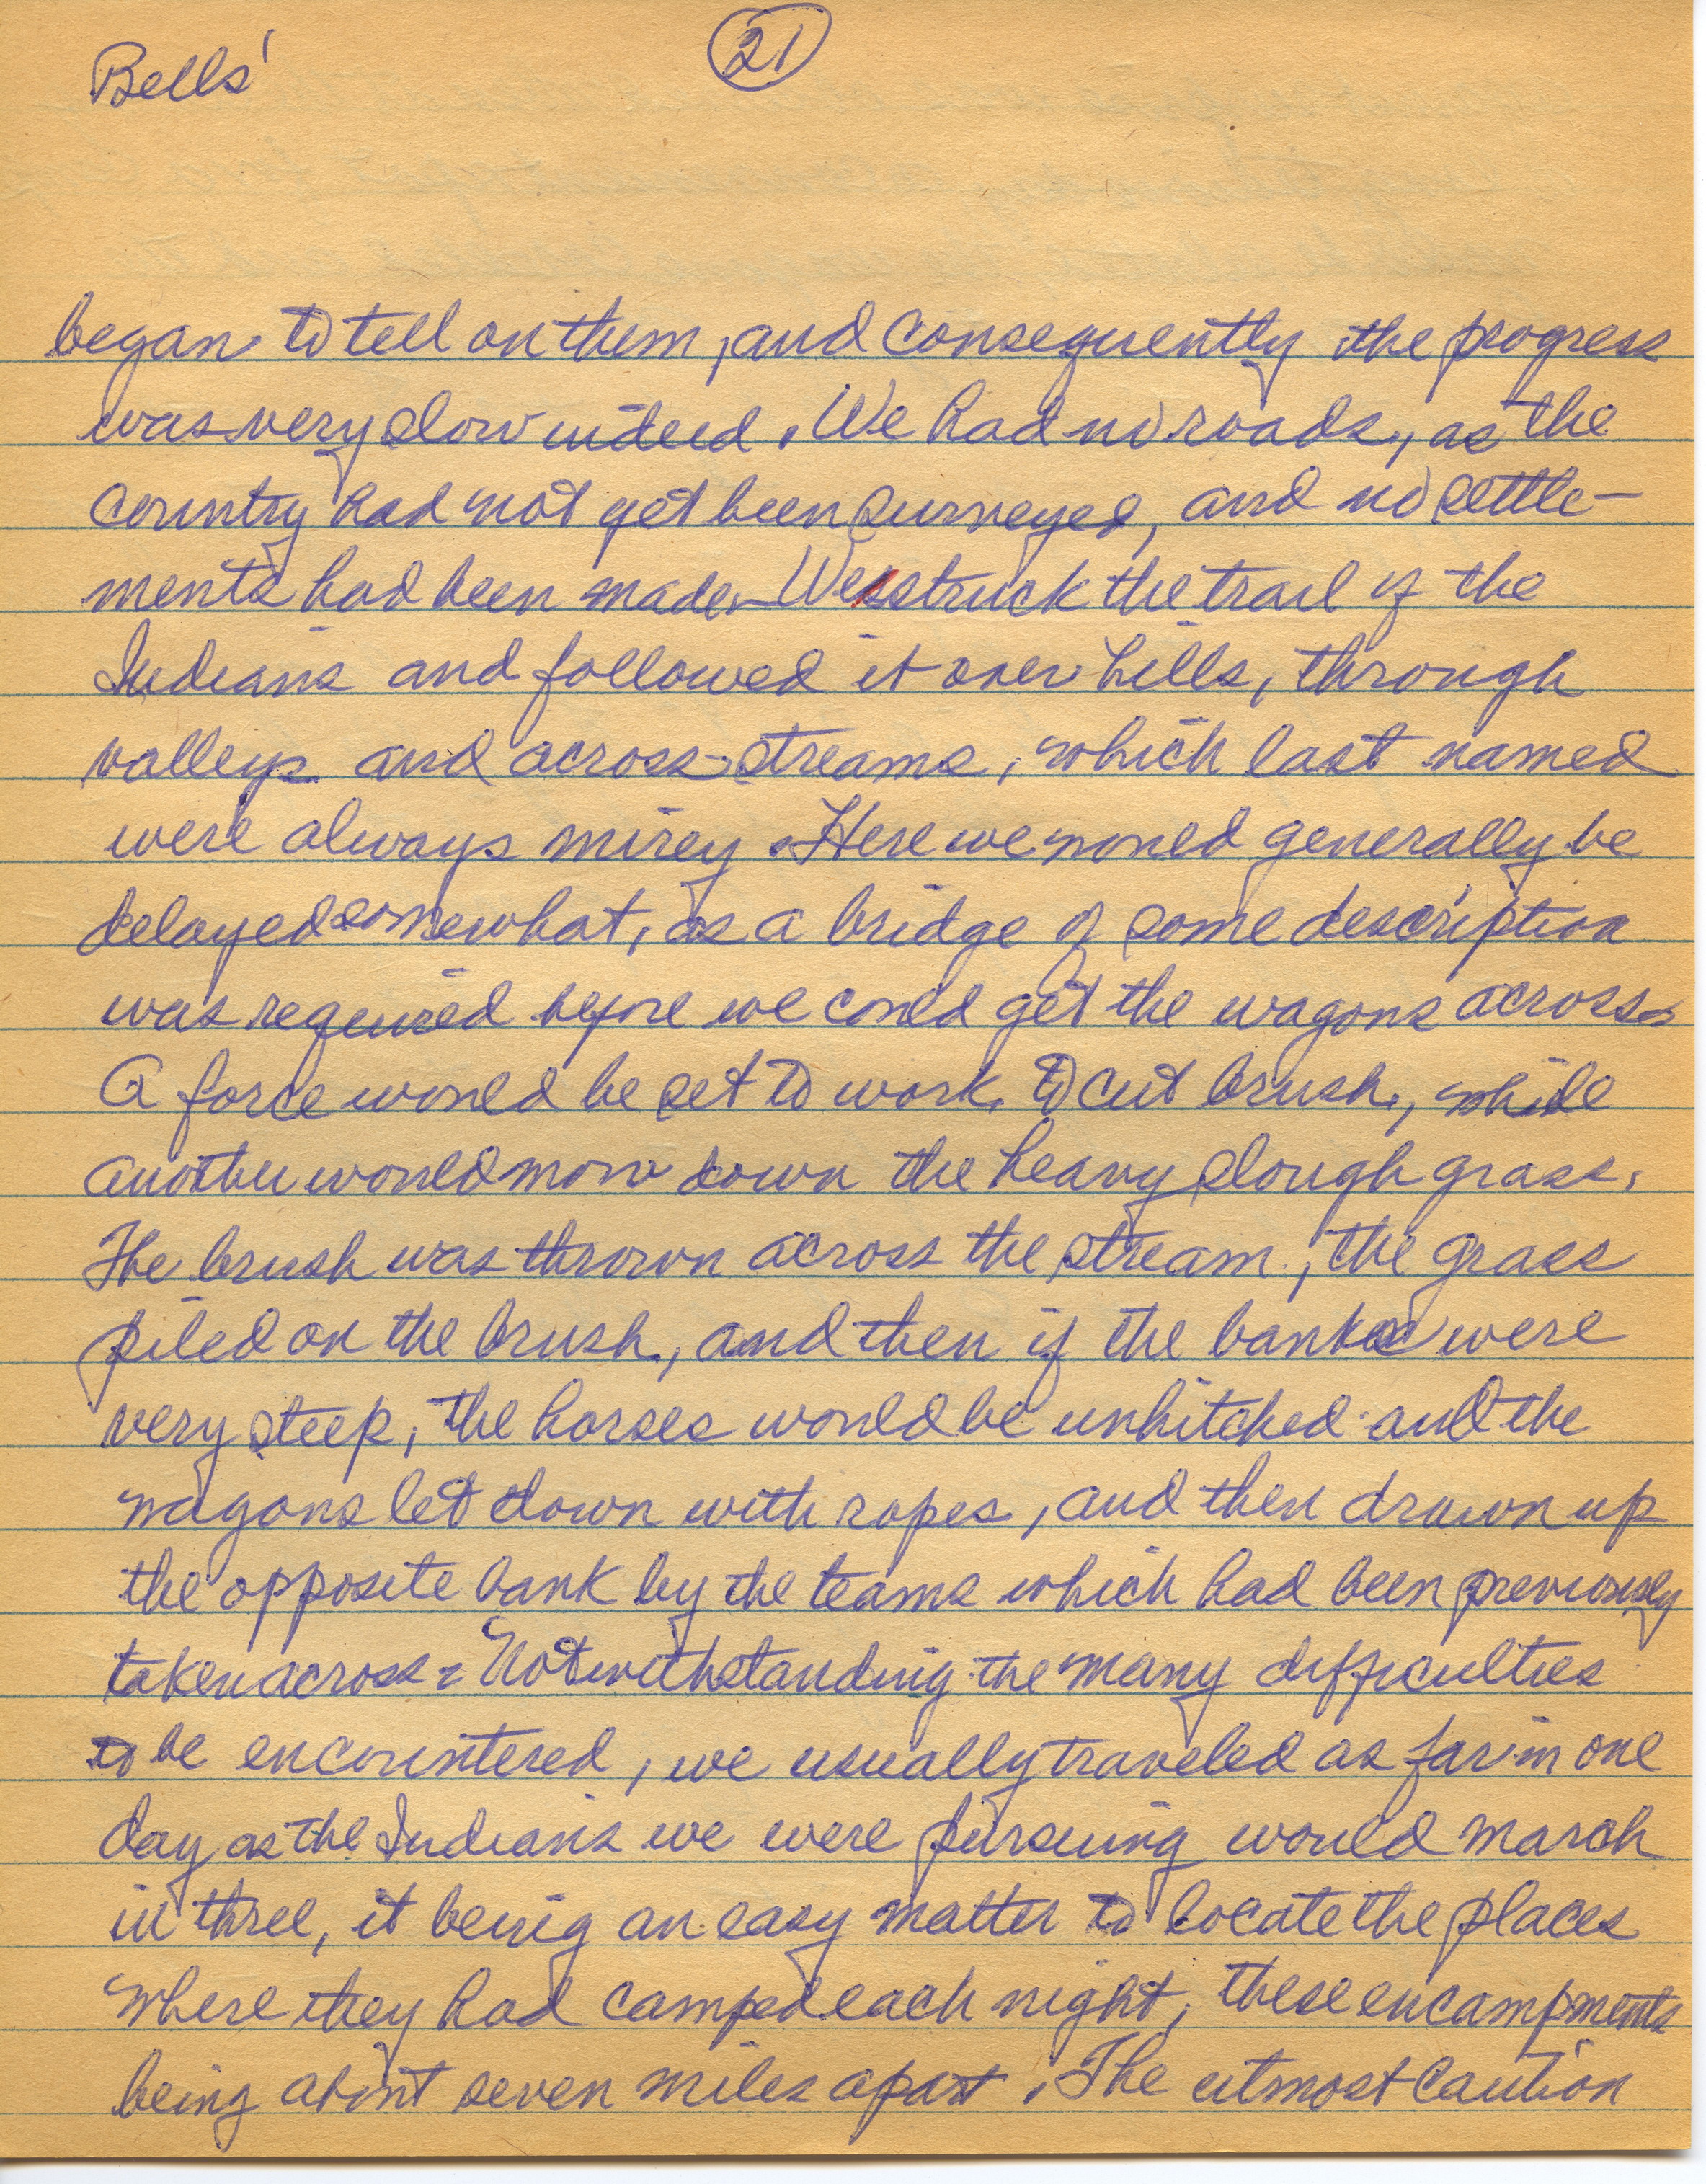 Bells'
21
began to tell on them, and consequently the progress
was very slow indeed. We had no roads, as the
country had not yet been surveyed, and no settle-
ments had been made. We struck the trail of the
Indians and followed it over hills, through
valleys and across streams, which last named
were always mirey. Here we would generally be
delayed somewhat, as a bridge of some description
was required before we could get the wagons across.
A force would be set to work to cut brush, while
another would mow down the heavy slough grass.
The brush was thrown across the stream, the grass
piled on the brush, and then if the banks were
very steep, the horses would be unhitched and the
wagons let down with ropes, and then drawn up
the opposite bank by the teams which had been previously
taken across. Notwithstanding the many difficulties
to be encountered, we usually traveled as far in one
day as the Indians we were pursuing would march
in three, it being an easy matter to locate the places
where they had camped each night, these encampments
being about seven miles apart. The utmost caution